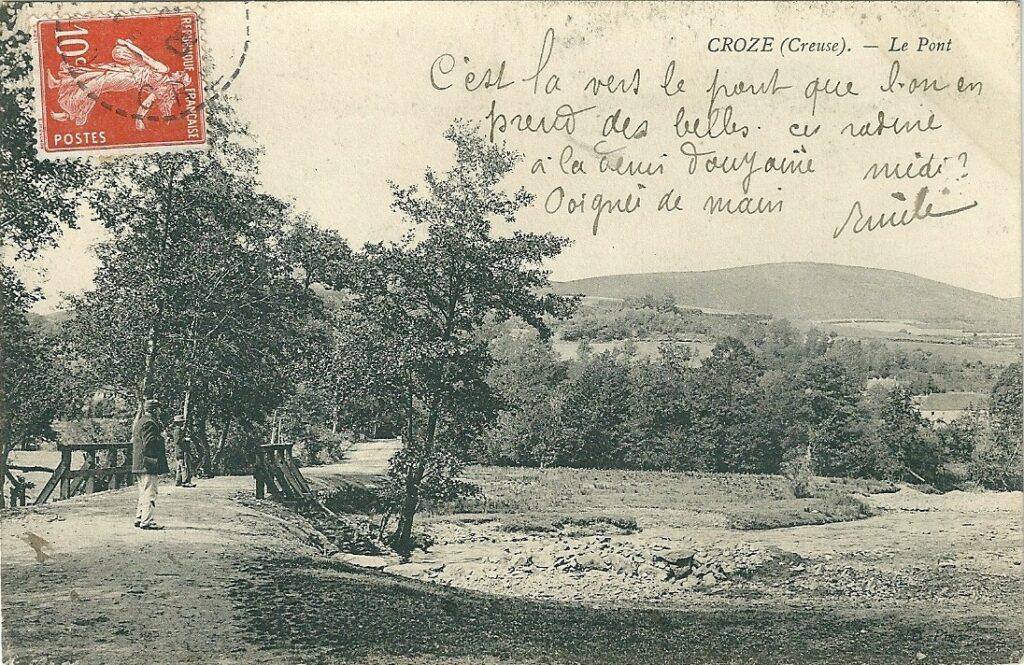 REPUBLIQUE FRANÇAISE
10c
POSTES
CROZE (Creuse). — Le Pont
C'est la vers le pont que l'on en
prend des belles. ce
à la midi ?
Poignée de main
Emile